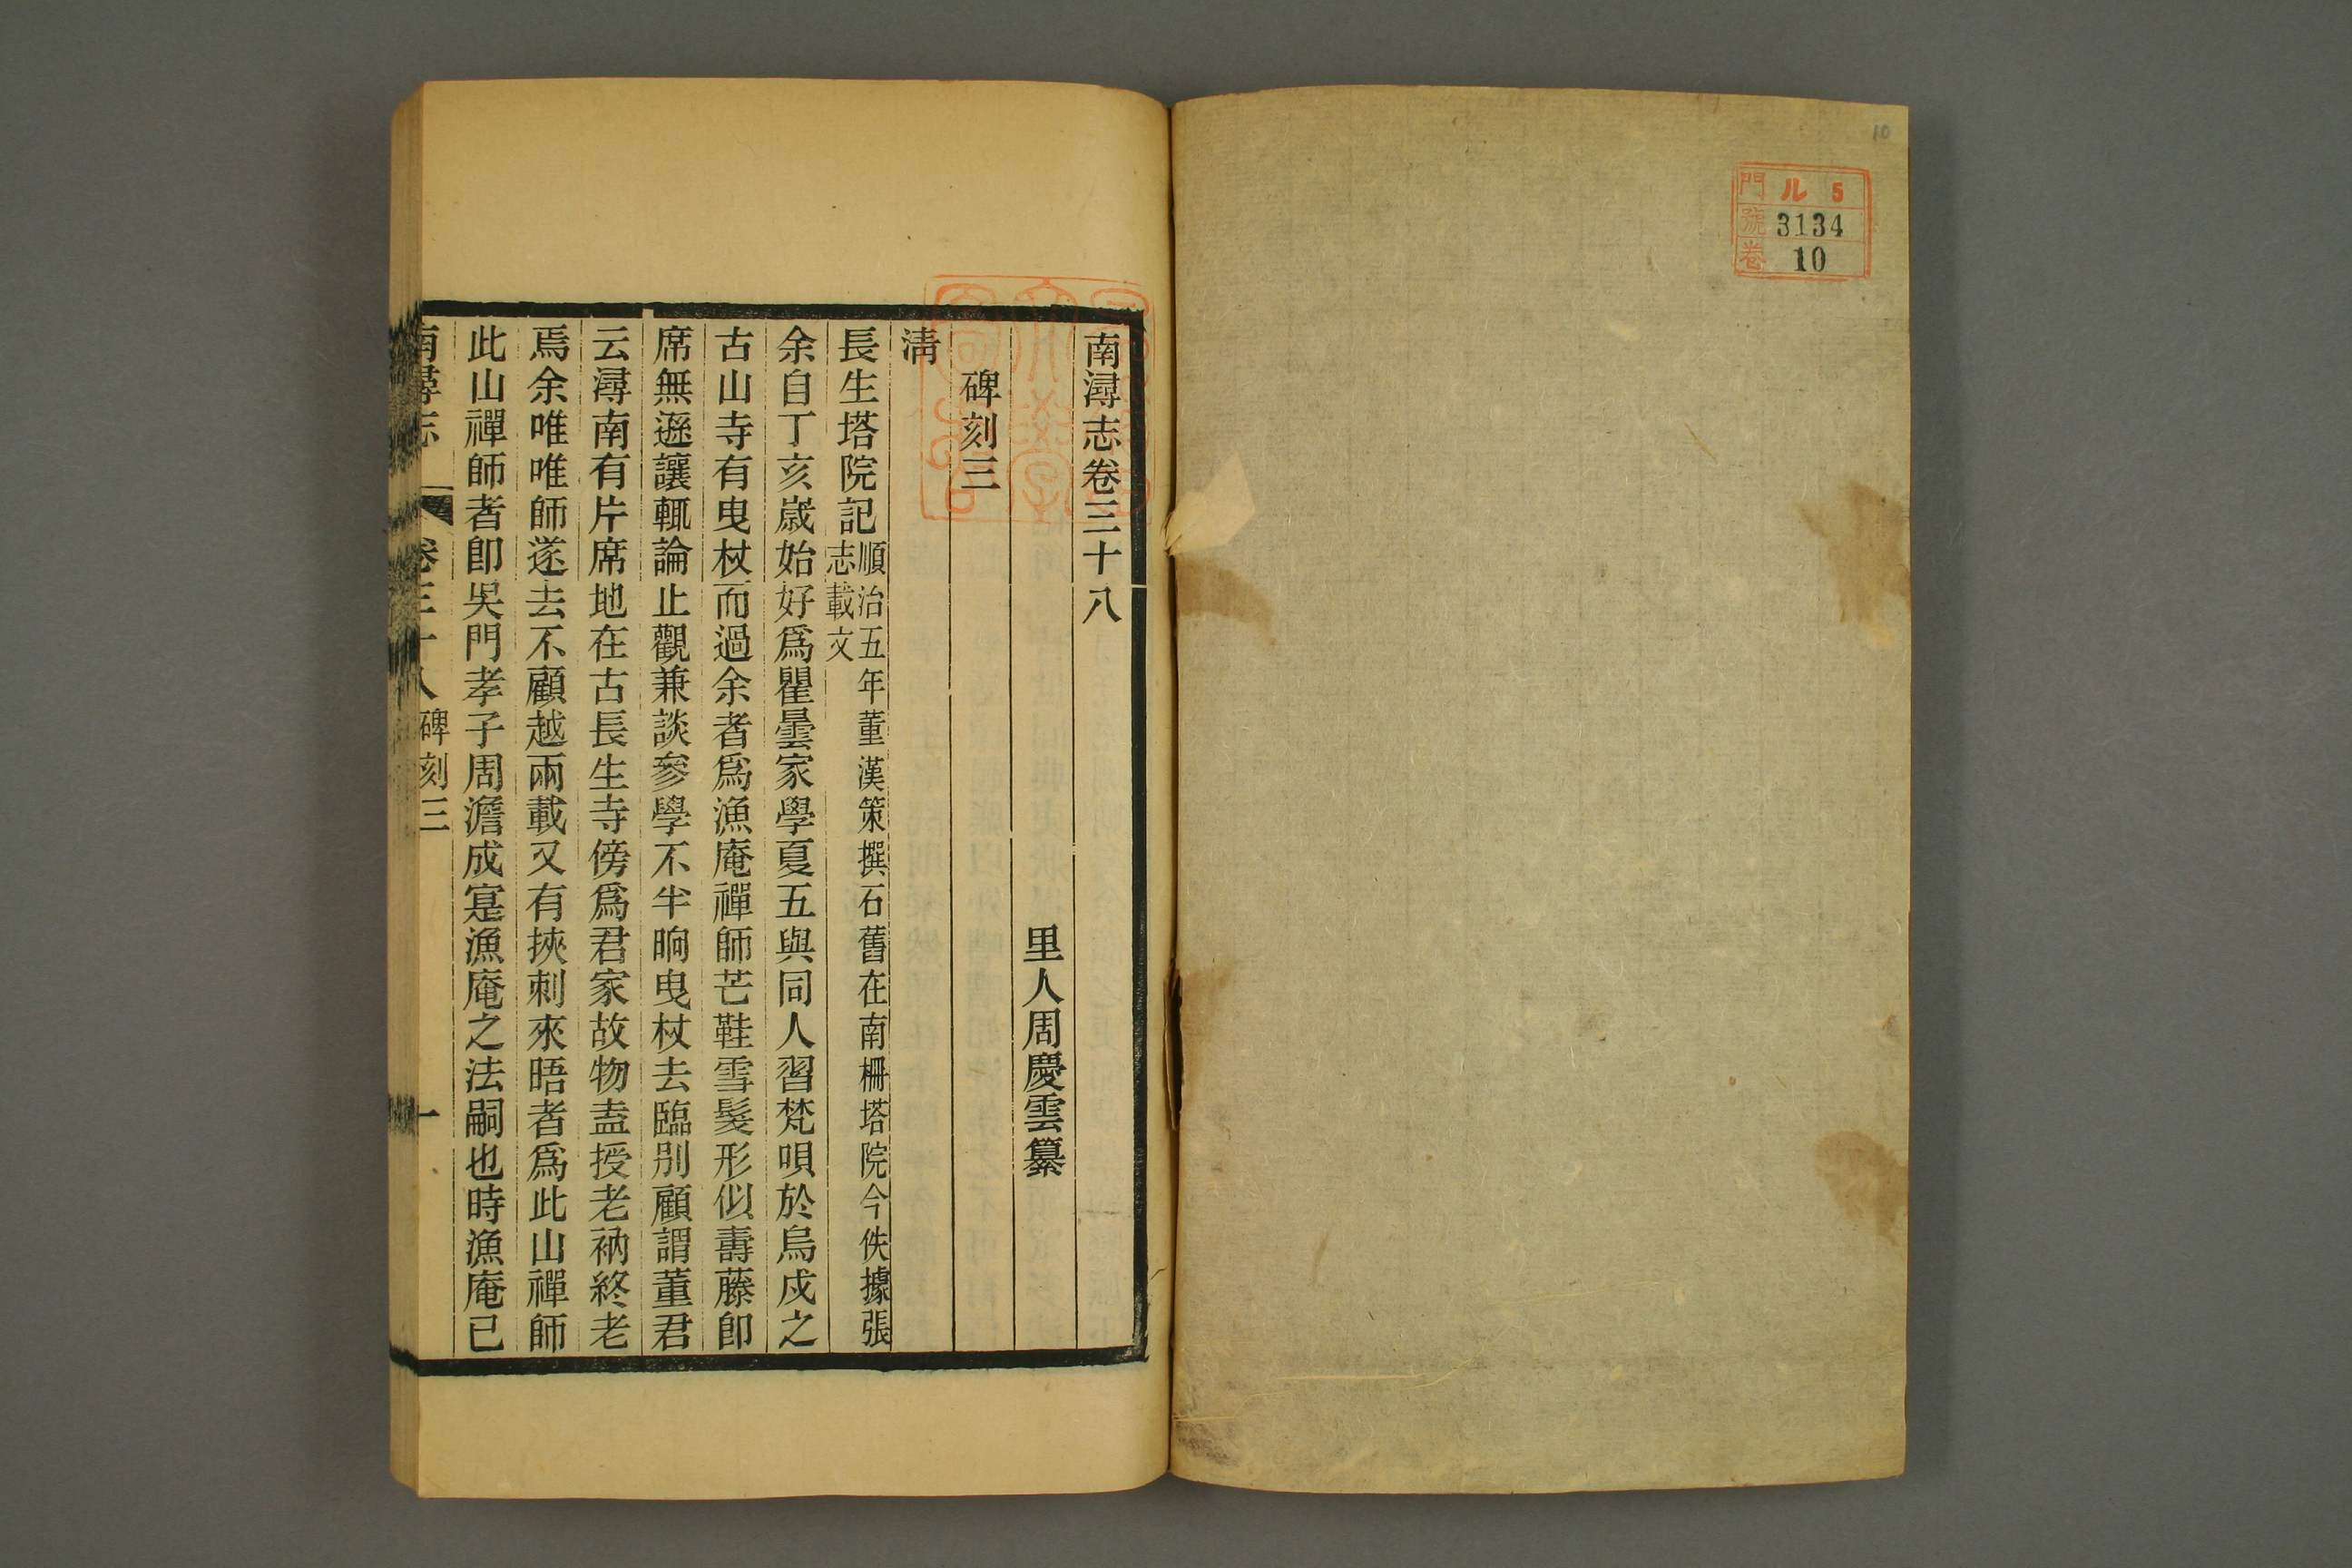 10
門 ル 5
號 3134
卷 10
南潯志卷三十八
里人周慶雲纂
碑刻三
淸
長生塔院記順治五年董漢策撰石舊在南柵塔院今佚據張
志載文
余自丁亥歲始好爲瞿曇家學夏五與同人習梵唄於烏戍之
古山寺有曳杖而過余者爲漁庵禪師芒鞋雪髮形似壽藤卽
席無遜讓輒論止觀兼談參學不半晌曳杖去臨別顧謂董君
云潯南有片席地在古長生寺傍爲君家故物盍授老衲終老
焉余唯唯師遂去不顧越兩載又有挾刺來晤者爲此山禪師
此山禪師者卽吳門孝子周澹成寔漁庵之法嗣也時漁庵已
南潯志 卷三十八 碑刻三 一